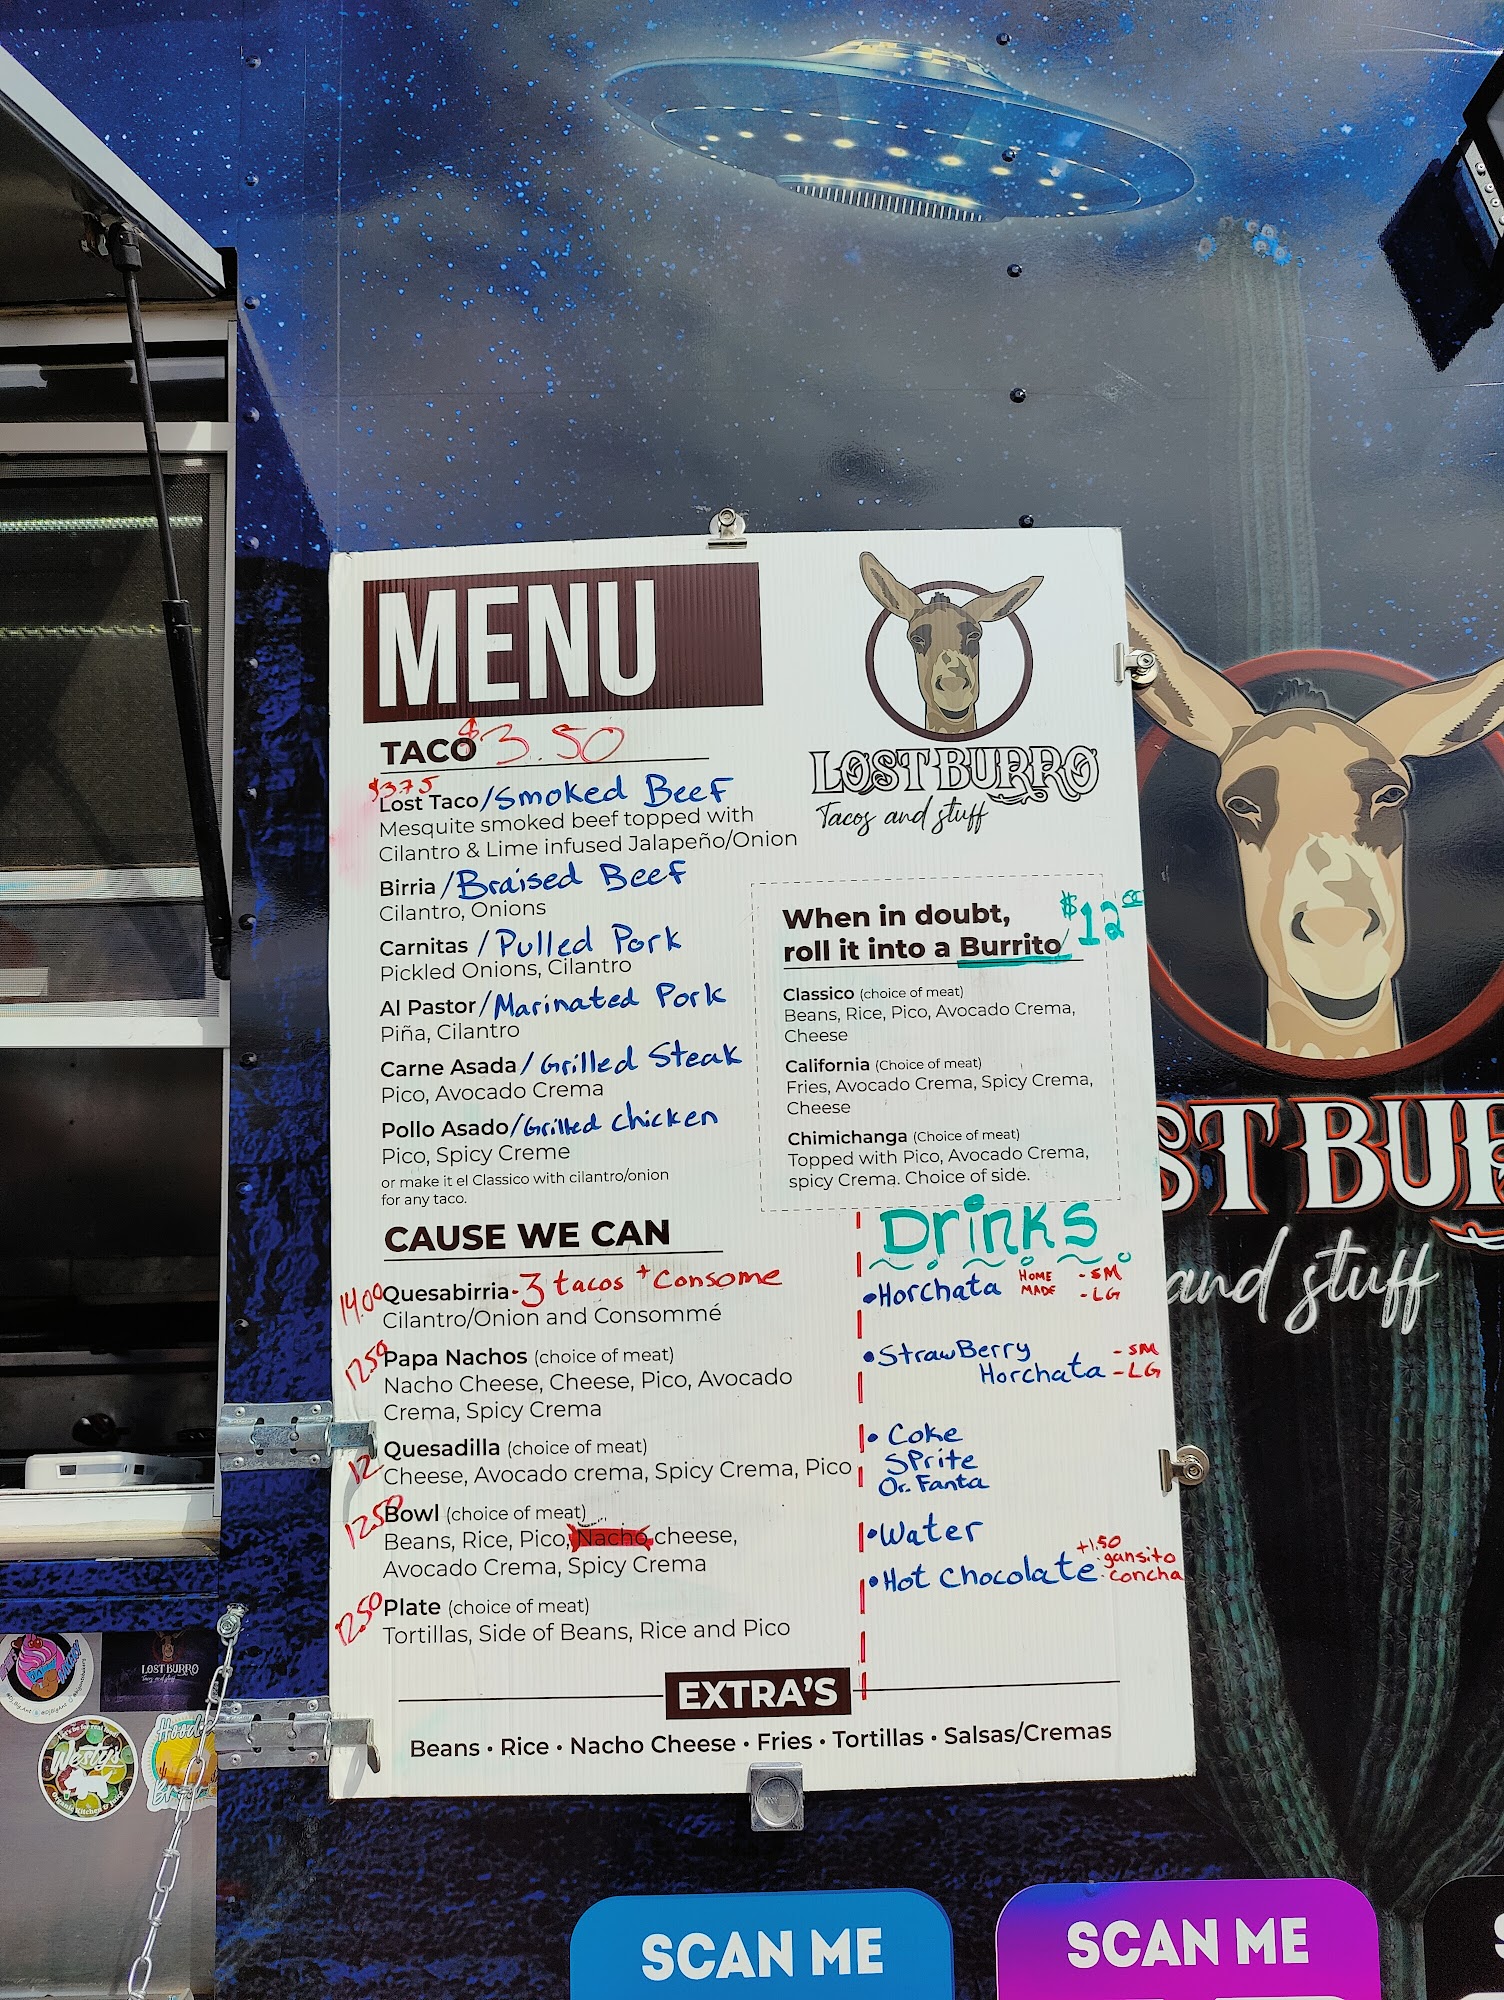 MENU
TACO $3.50
$3.75
Lost Taco/Smoked Beef
Mesquite smoked beef topped with
Cilantro & Lime infused Jalapeño/Onion
Birria/Braised Beef
Cilantro, Onions
Carnitas/Pulled Pork
Pickled Onions, Cilantro
Al Pastor/Marinated Pork
Piña, Cilantro
Carne Asada/Grilled Steak
Pico, Avocado Crema
Pollo Asado/Grilled chicken
Pico, Spicy Creme
or make it el Classico with cilantro/onion
for any taco.
CAUSE WE CAN
14.00 Quesabirria-3 tacos + Consome
Cilantro/Onion and Consommé
12.50 Papa Nachos (choice of meat)
Nacho Cheese, Cheese, Pico, Avocado
Crema, Spicy Crema
12 Quesadilla (choice of meat)
Cheese, Avocado crema, Spicy Crema, Pico
12.50 Bowl (choice of meat)
Beans, Rice, Pico, Nacho cheese,
Avocado Crema, Spicy Crema
12.50 Plate (choice of meat)
Tortillas, Side of Beans, Rice and Pico
LOST BURRO
Tacos and stuff
When in doubt,
roll it into a Burrito $12
Classico (choice of meat)
Beans, Rice, Pico, Avocado Crema,
Cheese
California (Choice of meat)
Fries, Avocado Crema, Spicy Crema,
Cheese
Chimichanga (Choice of meat)
Topped with Pico, Avocado Crema,
spicy Crema. Choice of side.
Drinks
•Horchata HOME MADE -SM -LG
•StrawBerry -SM
Horchata -LG
• Coke
SPrite
Or. Fanta
•Water
•Hot Chocolate +1.50 gansito concha
EXTRA'S
Beans • Rice • Nacho Cheese • Fries • Tortillas • Salsas/Cremas
ST BUR
and stuff
LOST BURRO
Westy's
SCAN ME
SCAN ME